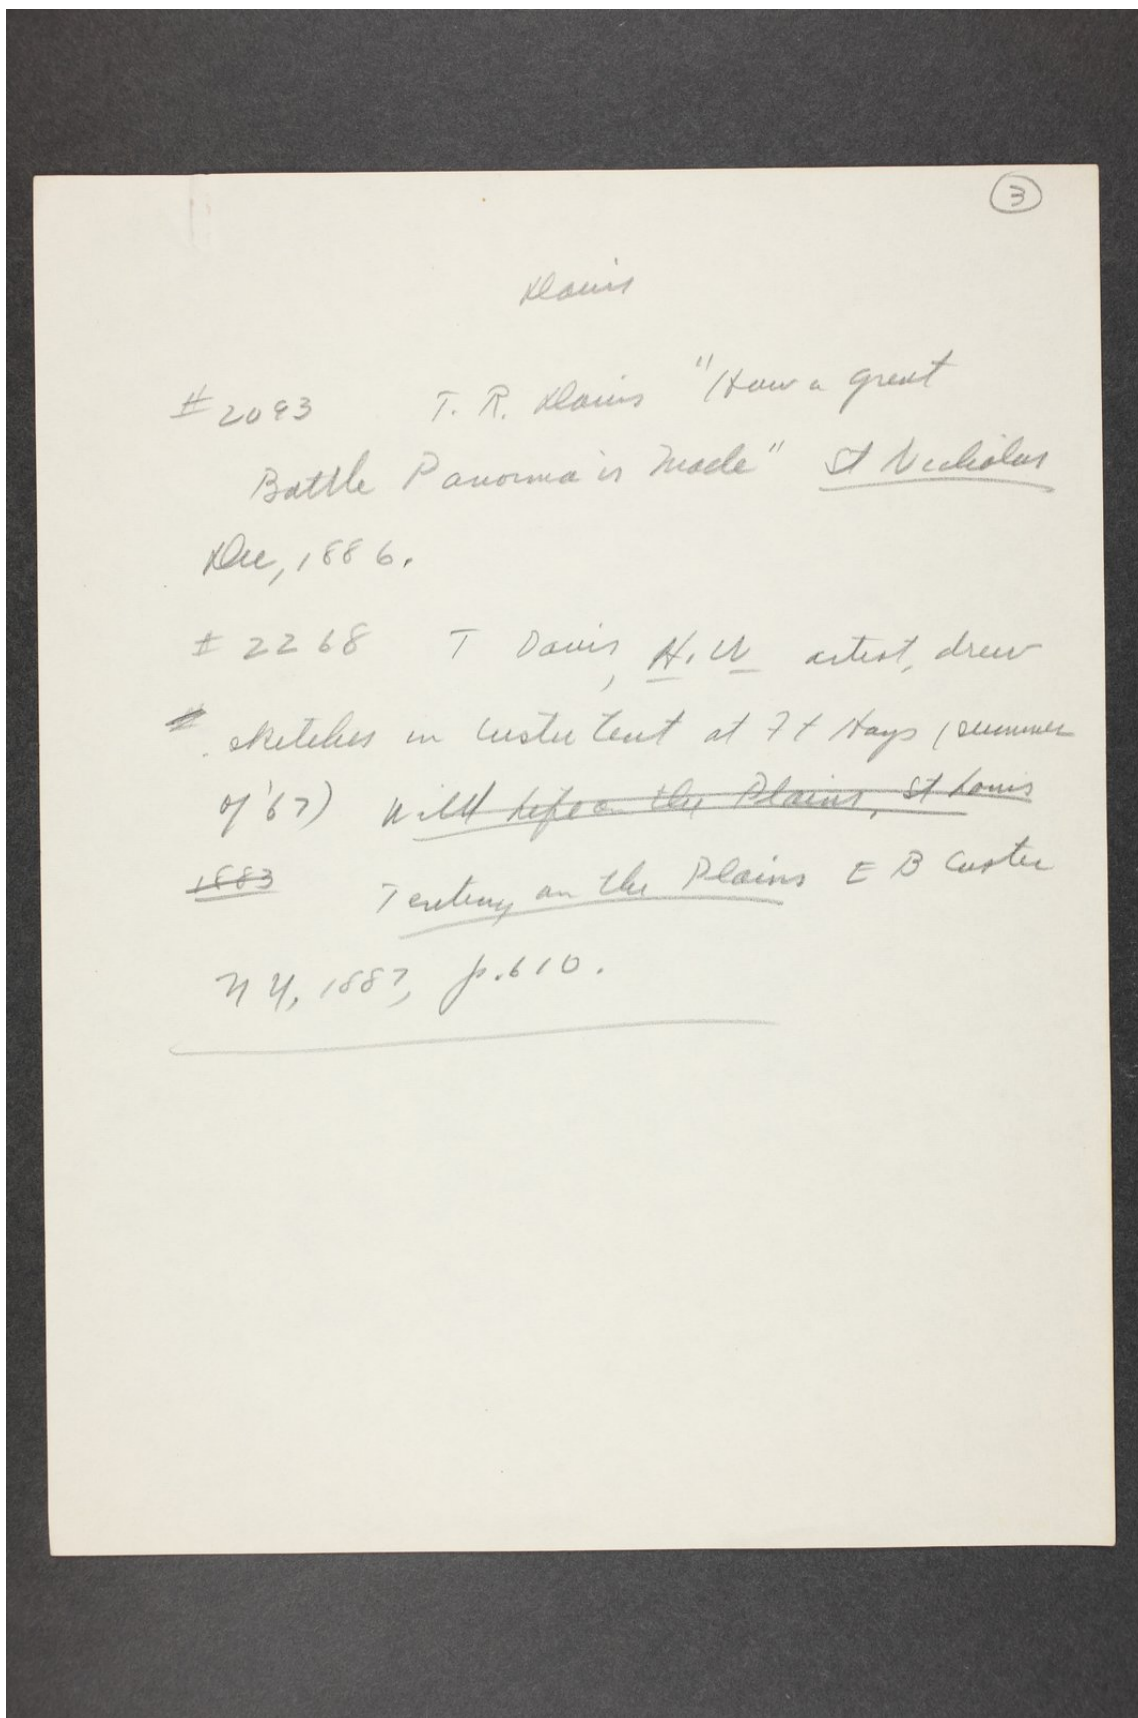 3
Davis
#2093 T. R. Davis "How a great
Battle Panorma is Made" St Nicholas
Dec, 1886.
# 2268 T Davis, H.W artist, drew
# sketches in Custer tent at Ft Hays (summer
of '67) Wild Life on the Plains, St Louis
1883 Tenting on the Plains E B Custer
NY, 1887, p.610.